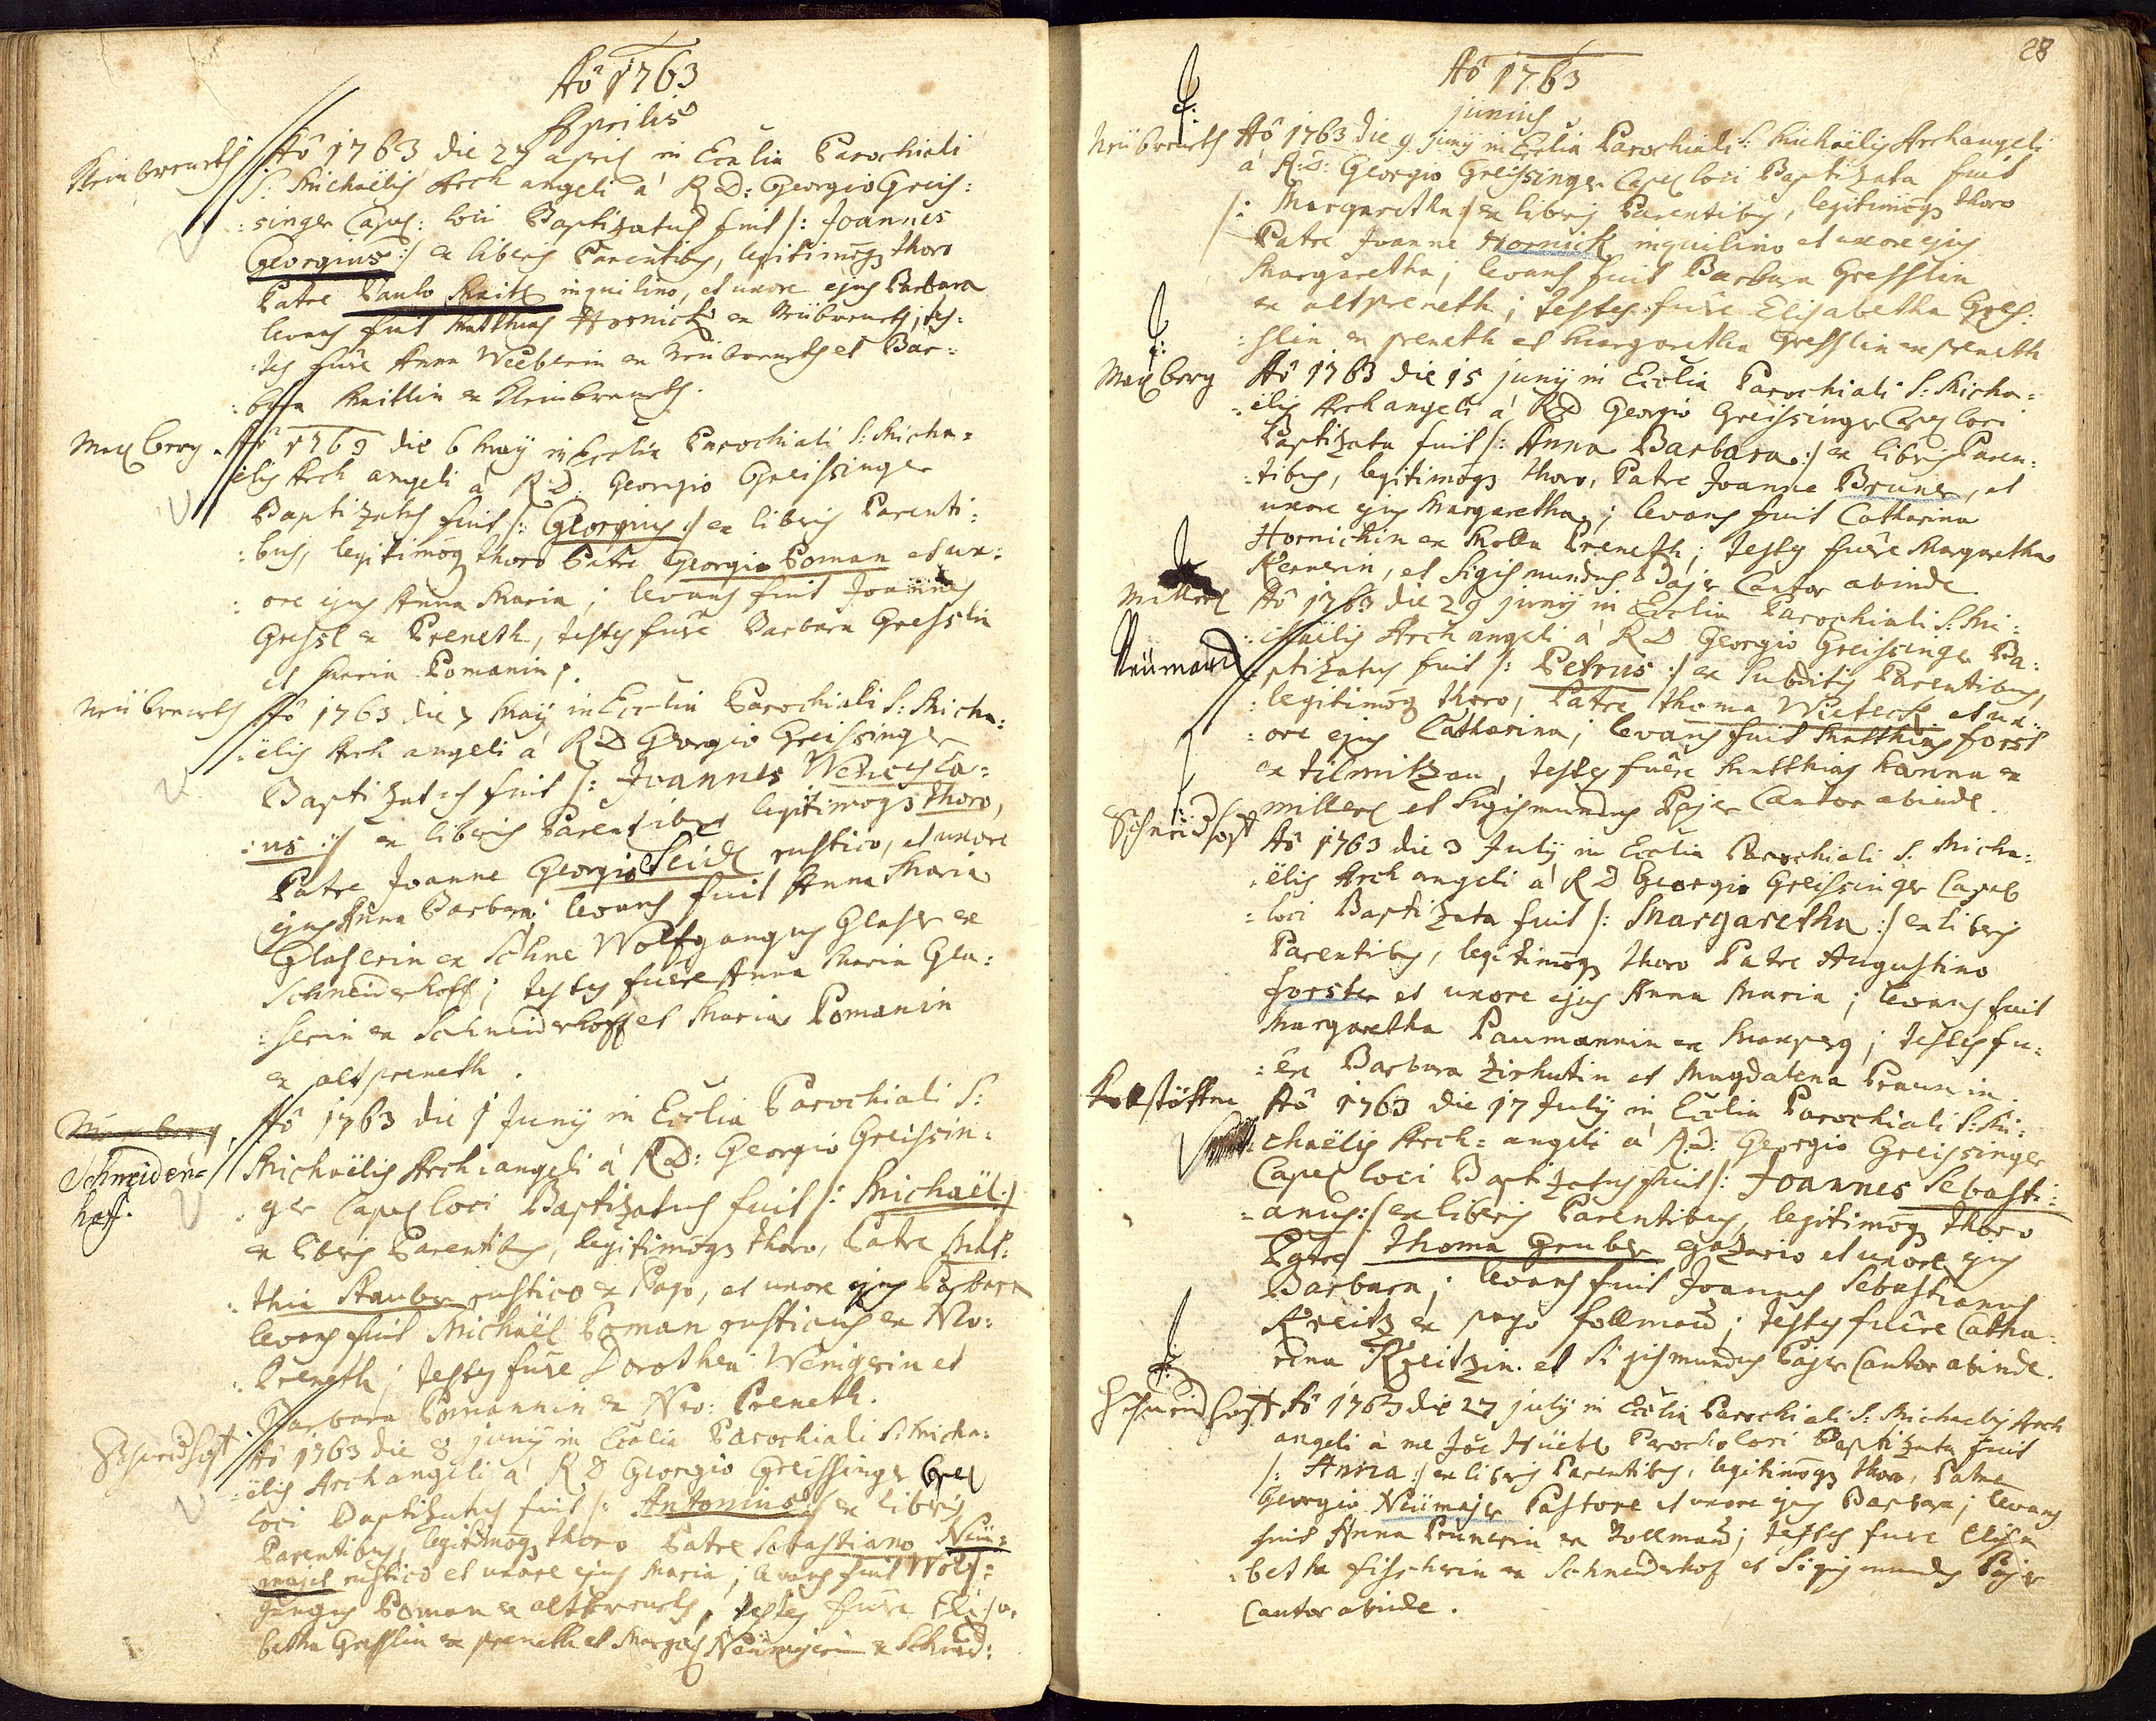 Aô 1763
Aprilis
Kleinbreneth
Aô 1763 die 27 april in Ecclia Parochiali
S: Michaëlis Arch angeli à R:D: Georgio Greis:
:singer Capel: loci Baptizatus fuit /: Joannes
Georgius :/ ex liberis Parentibus, legitimoq3 thoro
Patre Paulo Knitl inquilino, et uxore ejus Barbara
levans fuit Matthias Hornick ex Neübreneth; tes:
:tes fuêre Anna Weeberin ex Neübreneth et Bar:
:bara Knitlin ex Kleinbreneth.
Maxberg.
Aô 1763 die 6 May in Ecclia Parochiali S: Micha:
ëlis Arch angeli à R:D: Georgio Greissinger
Baptizatus fuit /: Georgius :/ ex liberis Parenti:
:bus, legitimoq3 thoro Patre Georgio Poman et ux:
:ore ejus Anna Maria; levans fuit Joannes
Gressl ex Preneth, testes fuêre Barbara Gresslin
et Maria Pomanin.
Neübreneth
Aô 1763 die 7 May in Ecclia Parochiali S: Micha:
:ëlis Arch angeli à R:D Georgio Greissinger
Baptizatus fuit /: Joannes Wencesla:
:us :/ ex liberis Parentibus legitimoq3 thoro,
Patre Joanne Georgio Seidl rustico, et uxore
ejus Anna Barbara; levans fuit Anna Maria
Glaserin ex Wolfgangus Glaser ex
Schneiderhoff; testes fuere Anna Maria Gla:
:serin ex Schneiderhoff et Maria Pomanin
ex altpreneth.
Maxberg.
Schneider=
hoff.
Aô 1763 die 1 Juny in Ecclia Parochiali S:
Michaëlis Arch:angeli à R:D: Georgio Greissin:
:ger Capel loci Baptizatus fuit /: Michaël :/
ex liberis Parentibus, legitimoq3 thoro, Patre Mat:
:thia Stauber rustico ex Pago, et uxore ejus Barbara
levans fuit Michaël Poman rusticus ex Neo:
:Preneth; testes fuêre Dorothea Wenigerin et
Barbara Pomannin ex Neo: Preneth.
Schneidhoff
Aô 1763 die 8 juny in Ecclia Parochiali S: Micha:
:ëlis Archangeli à R D Georgio Greissinger Capel
loci Baptizatus fuit /: Antonius :/ ex liberis
Parentibus, legitimoq3 thoro Patre Sebastiano Neü:
majer rustico et uxore ejus Maria; levans fuit Wolf:
gangus Poman ex altbreneth; testes fuêre Elisa:
betha Gresslin ex preneth et Marga Neümajerin ex Schneid:
28
Aô 1763
junius
Neübreneth
Aô 1763 die 9 juny in Ecclia Parochiali S: Michaëlis Archangeli
à R:D: Georgio Greissinger Capel loci Baptizata fuit
/: Margaretha :/ ex liberis Parentibus, legitimoq3 thoro
Patre Joanne Hornick inquilino et uxore ejus
Margaretha; levans fuit Barbara Gresslin
ex altpreneth; testes fuêre Elisabetha Gres:
:slin ex preneth et Margaretha Gresslin ex preneth
Maxberg
Aô 1763 die 15 juny in Ecclia Parochiali S: Micha:
:ëlis Archangeli à R:D Georgio Greissinger Capel loci
Baptizata fuit /: Anna Barbara :/ ex liberis Paren:
:tibus, legitimoq3 thoro, Patre Joanne Bruner, et
uxore ejus Margaretha; levans fuit Catharina
Hornickin ex Preneth; testes fuêre Margaretha
Kernerin, et Sigismundus Bajer Cantor abinde
Millerl
Neümarck
Aô 1763 die 29 juny in Ecclia Parochiali S: Mi:
:chaëlis Arch angeli à R:D Georgio Greissinger Ba:
:ptizatus fuit /: Petrus :/ ex subditis Parentibus,
:legitimoq3 thoro, Patre thoma et ux:
:ore ejus Catharina; levans fuit Matthias forst
ex tilmitzau, testes fuêre Matthias Hanna ex
millerl et Sigismundus Pajer Cantor abinde.
Schneidhoff
Aô 1763 die 3 July in Ecclia Parochiali S. Micha:
:ëlis Arch angeli à R D Georgio Greissinger Capel
:loci Baptizata fuit /: Margaretha :/ ex liberis
Parentibus, legitimoq3 thoro Patre Augustino
forster et uxore ejus Anna Maria; levans fuit
Margaretha Paumannin ex Maxperg; testes fu:
:êre Barbara Zirhutin et Magdalena Praunin.
Aô 1763 die 17 July in Ecclia Parochiali S: Mi:
:chaëlis Arch:angeli à R:D: Georgio Greissinger
Capel loci Baptizatus fuit /: Joannes Sebasti:
:anus :/ ex liberis Parentibus, legitimoq3 thoro
Patre thoma Gruber gazario et uxore ejus
Barbara; levans fuit Joannes Sebastianus
Kreitz ex pago follmau; testes fuêre Catha:
rina Kreitzin et Sigismundus Pajer Cantor abinde.
Schneidhoff
Aô 1763 die 27 july in Ecclia Parochiali S: Michaelis Arch
angeli à me Jôe Hüebl Parocho loci Baptizata fuit
/: Anna :/ ex liberis Parentibus, legitimoq3 thoro, Patre
Georgio Neümajer Pastore et uxore ejus Barbara; levans
fuit Anna Prunerin ex Vollmau; testes fuere Elisa
:betha fischerin ex Schneiderhof et Sigismundus Pajer
Cantor abinde.